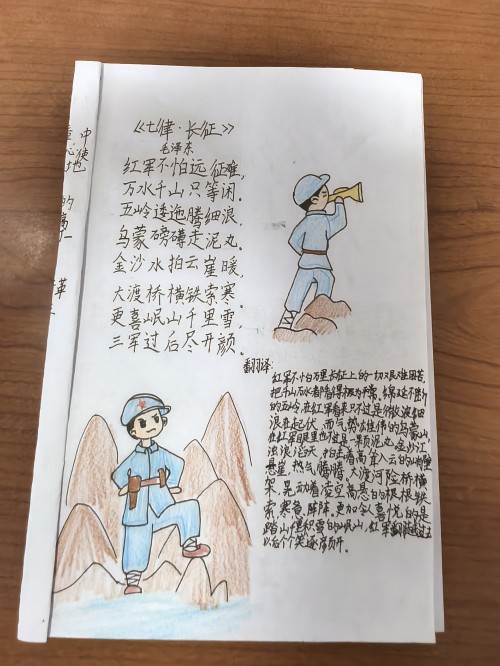 《七律·长征》
毛泽东
红军不怕远征难,
万水千山只等闲。
五岭逶迤腾细浪,
乌蒙磅礴走泥丸。
金沙水拍云崖暖,
大渡桥横铁索寒。
更喜岷山千里雪,
三军过后尽开颜。
翻译:
红军不怕万里长征上的一切艰难困苦,
把千山万水都看得极为平常,绵延不断
的五岭,在红军看来只不过是微波细
浪在起伏,而气势雄伟的乌蒙山,
在红军眼里也不过是一颗泥丸。金沙江
浊浪滔天,拍击着高耸入云的
悬崖,热气腾腾。大渡河险桥横
架,晃动着凌空高悬的根根铁
索,寒意阵阵。更加令人喜悦的是
踏上千里积雪的岷山,红军翻越过去
以后个个笑逐颜开。
中
使
地
的
革